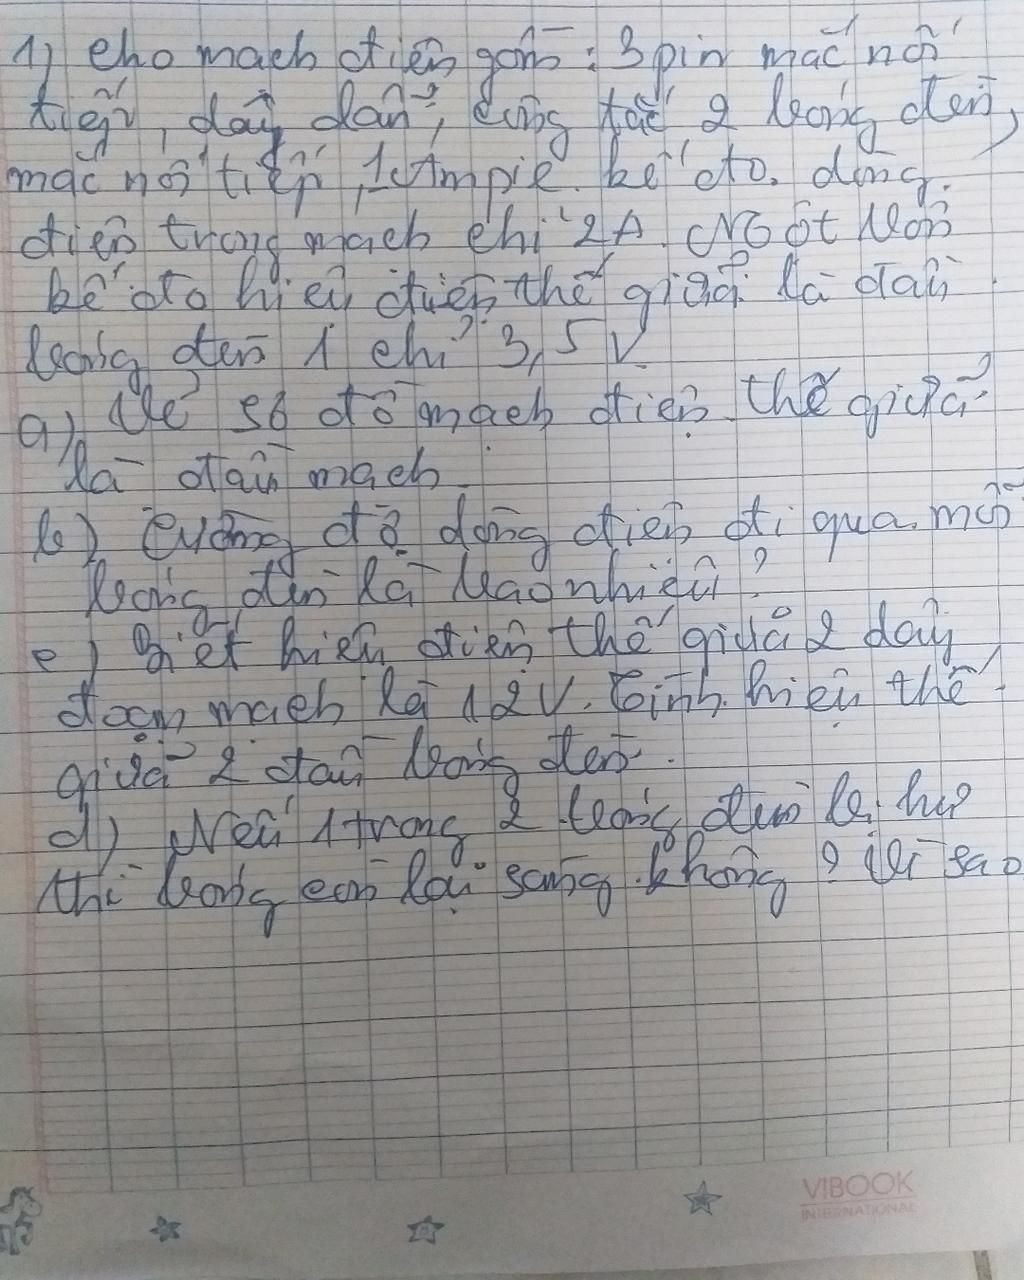 1) Cho mạch điện gồm: 3 pin mắc nối
tiếp, dây dẫn, công tắc 2 bóng đèn,
mắc nối tiếp, 1 Ampe kế đo dòng
điện trong mạch chỉ 2A. Một Vôn
kế đo hiệu điện thế giữa 2 đầu
bóng đèn 1 chỉ 3,5V
a) Vẽ sơ đồ mạch điện thế giữa
là đầu mạch
b) Cường độ dòng điện đi qua mỗi
bóng đèn là bao nhiêu?
c) Biết hiệu điện thế giữa 2 dây
đoạn mạch là 12V. Tính hiệu thế
giữa 2 đầu bóng đèn.
d) Nếu 1 trong 2 bóng đèn bị hư
thì bóng còn lại sáng không? Vì sao
VIBOOK
INTERNATIONAL